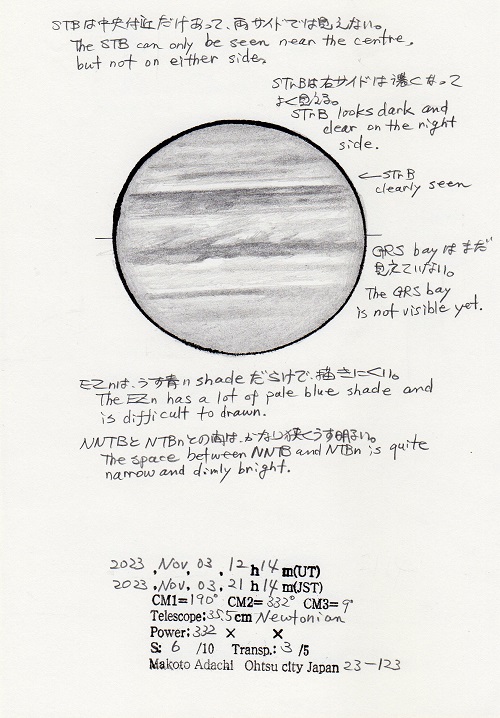 STBは中央付近だけあって、両サイドでは見えない。
The STB can only be seen near the centre,
but not on either side.
STnBは右サイドは濃くなって
よく見える。
STnB looks dark and
clear on the right
side.
←STnB
clearly seen
GRS bayはまだ
見えていない。
The GRS bay
is not visible yet.
EZnは、うす青n shadeだらけで、描きにくい。
The EZn has a lot of pale blue shade and
is difficult to drawn.
NNTBとNTBnとの間は、かなり狭くうす明るい。
The space between NNTB and NTBn is quite
narrow and dimly bright.
2023 , Nov, 03 , 12 h 14 m(UT)
2023 , Nov, 03 , 21 h 14 m(JST)
CM1= 190° CM2= 332° CM3= 9°
Telescope: 35.5 cm Newtonian
Power: 332 × ×
S: 6 /10 Transp.: 3 /5
Makoto Adachi Ohtsu city Japan 23-123